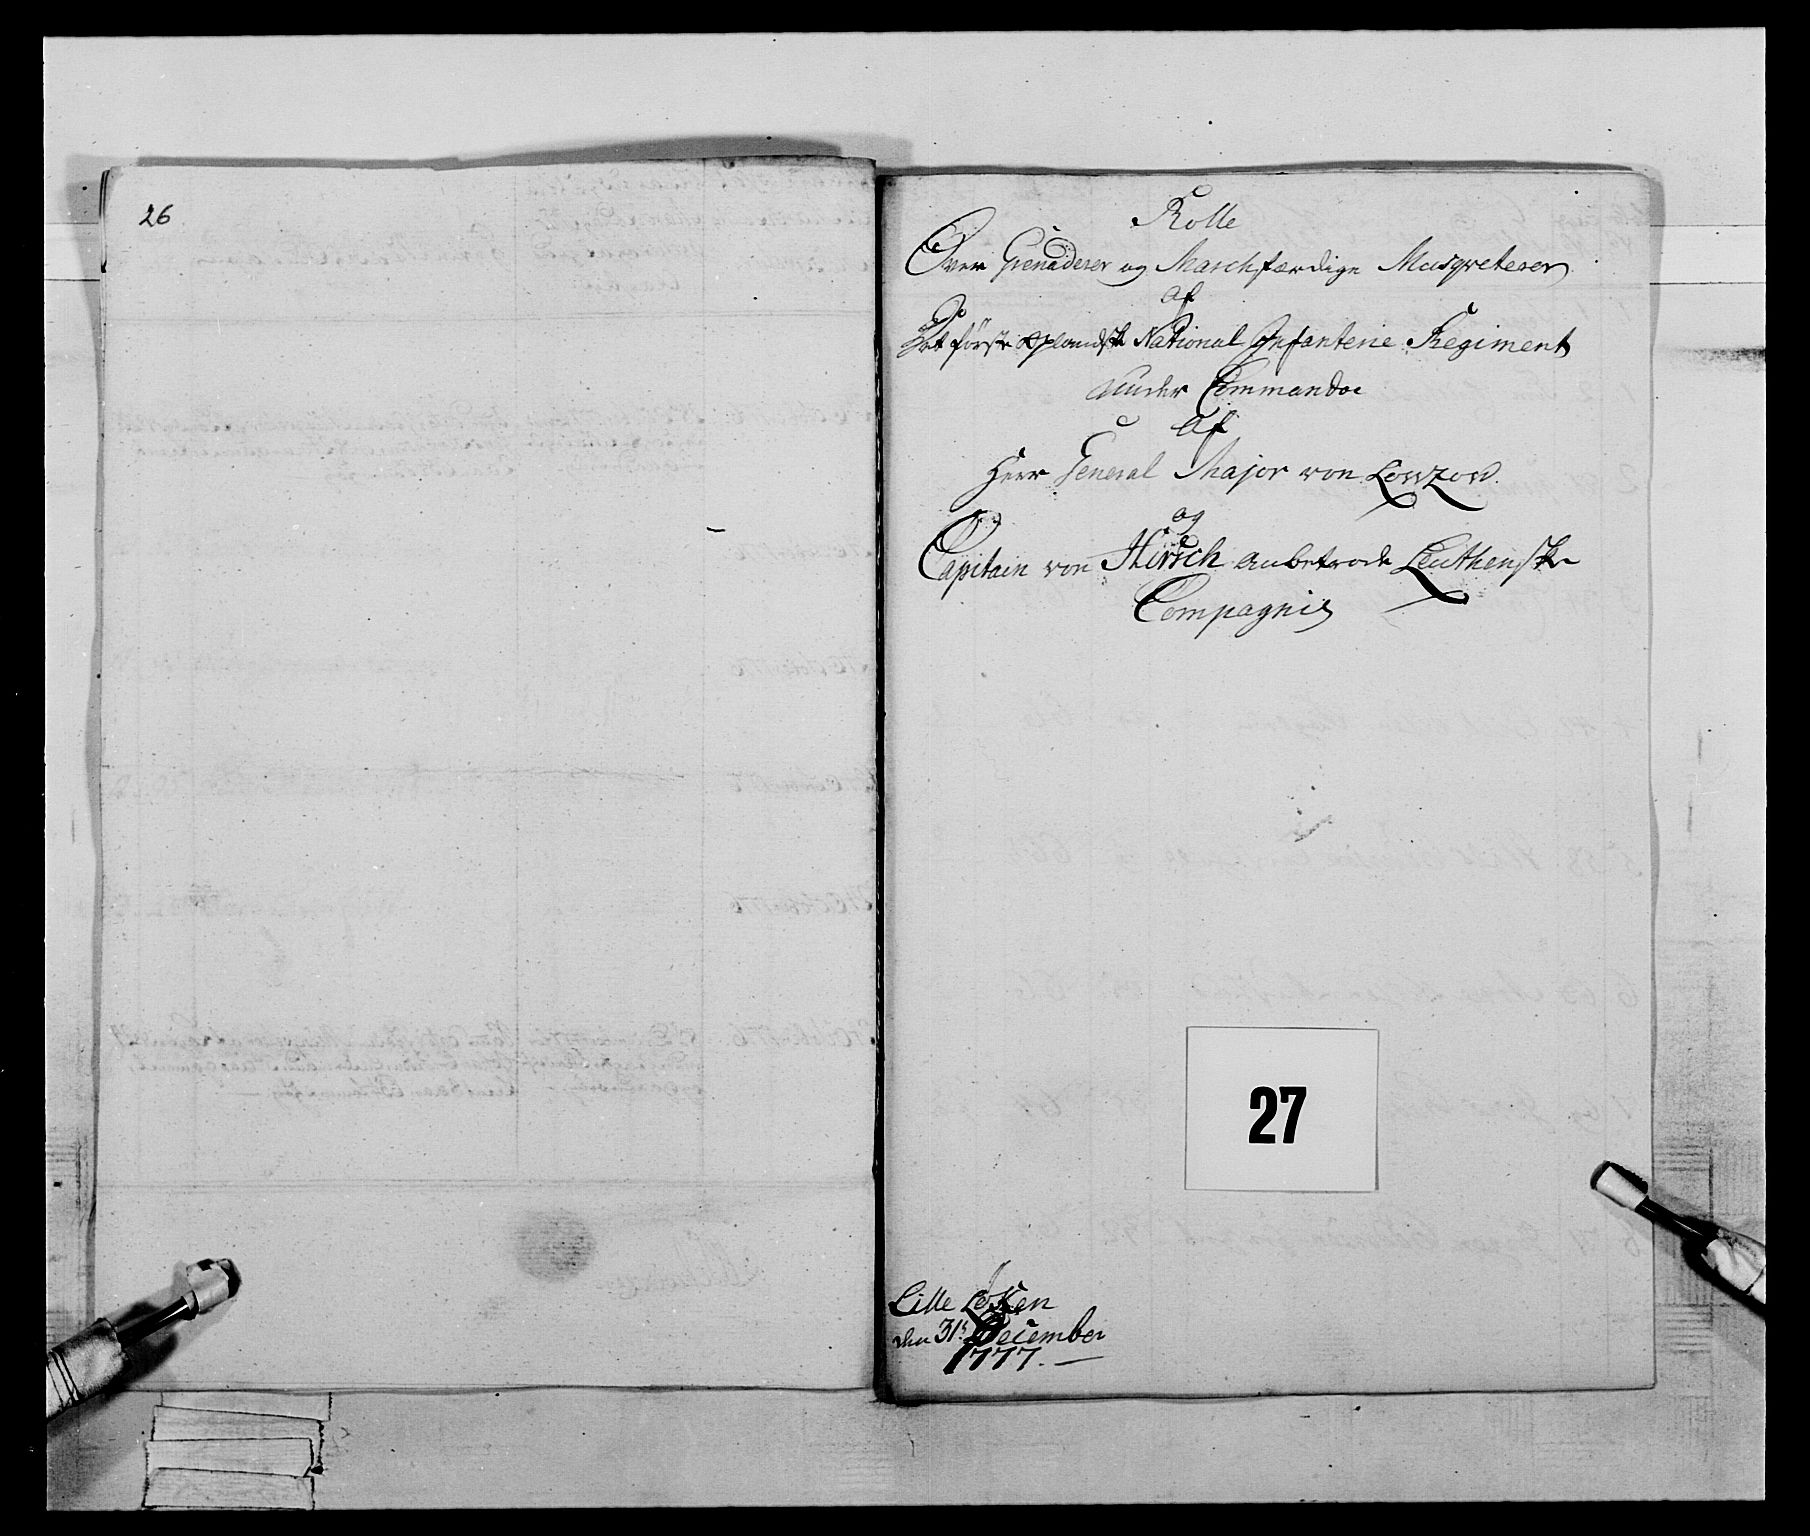 26
Rolle
Over Grenaderer og Marschfærdige Musqveterer
af
Det første Oplandsk National Infanterie Regiment
under Commando
af
Herr General Major von Lowzow
og
Capitain von Hirsch anbetrode Leuthenske
Compagnie
27
Lille Løken
den 31t December
1777.